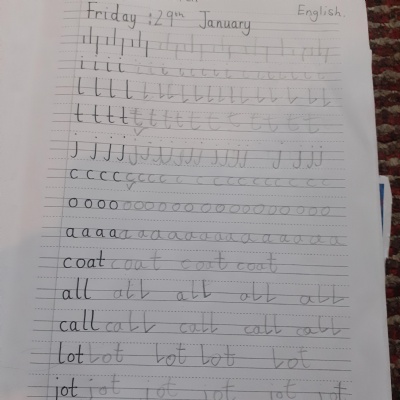 English.
Friday :29th January
i i i i i i i i i i i i i i i
l l l l l l l l l l l l l l l l l
t t t t t t t t t t t t t
j j j j j j j j j j j j j j j
c c c c c c c c c c c c c c c c c
o o o o o o o o o o o o o o o o o
a a a a a a a a a a a a a a a a
coat coat coat coat
all all all all all
call call call call call
lot lot lot lot lot
jot jot jot jot jot jot